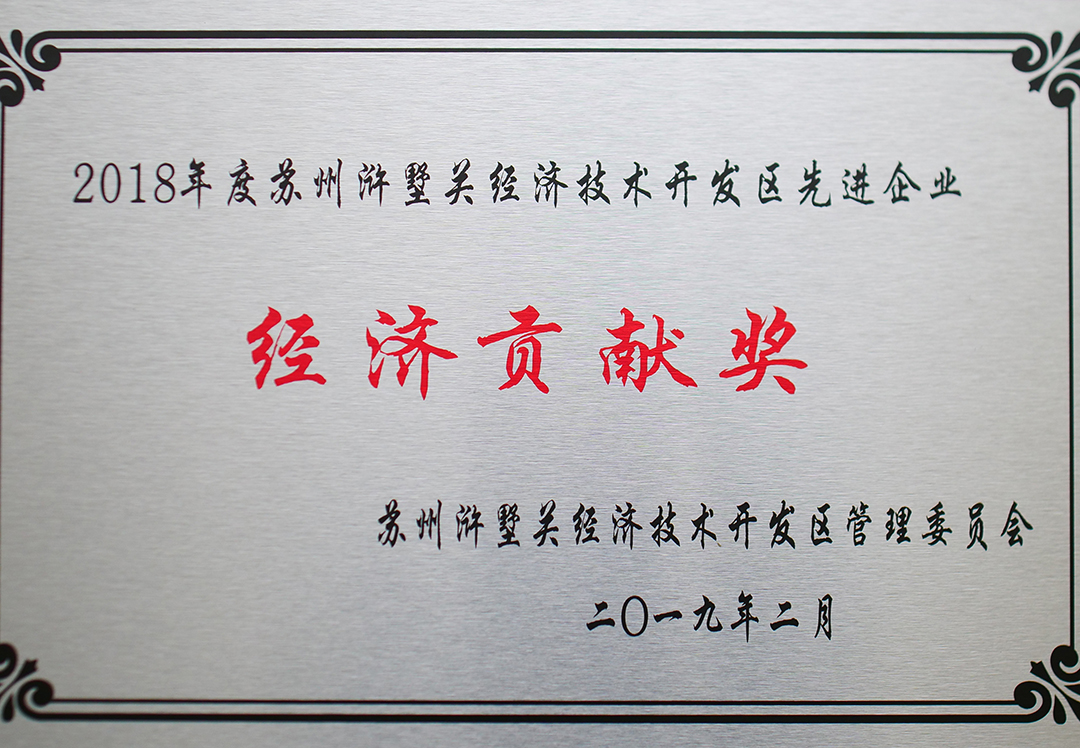 2018年度苏州浒墅关经济技术开发区先进企业
经济贡献奖
苏州浒墅关经济技术开发区管理委员会
二〇一九年二月